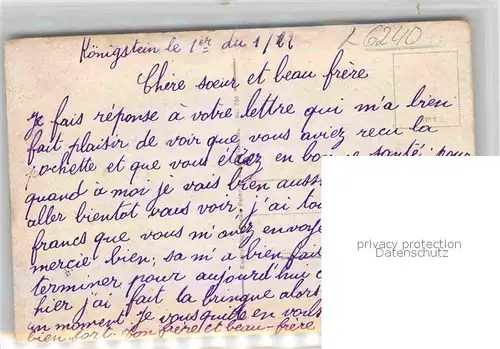 L 6240
Königstein le 1er du 1/22
Chère soeur et beau frère
Je fais réponse à votre lettre qui m'a bien
fait plaisir de voir que vous aviez recu la
pochette et que vous étiez en bonne santé pour
quand à moi je vais bien auss
aller bientot vous voir. j'ai
francs que vous m'avez envoye
mercie bien, sa m'a bien fai
terminer pour aujourd'hui
hier j'ai fait la bringue alors
un moment. Je vous quitte en vous
bien fort. Son frère et beau-frère
privacy protection
Datenschutz